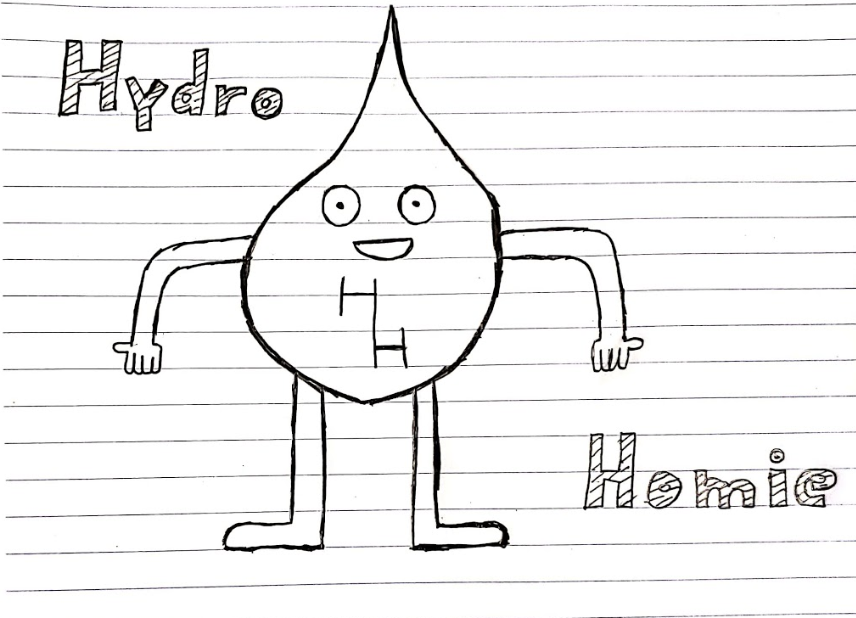 Hydro
H
H
Homie